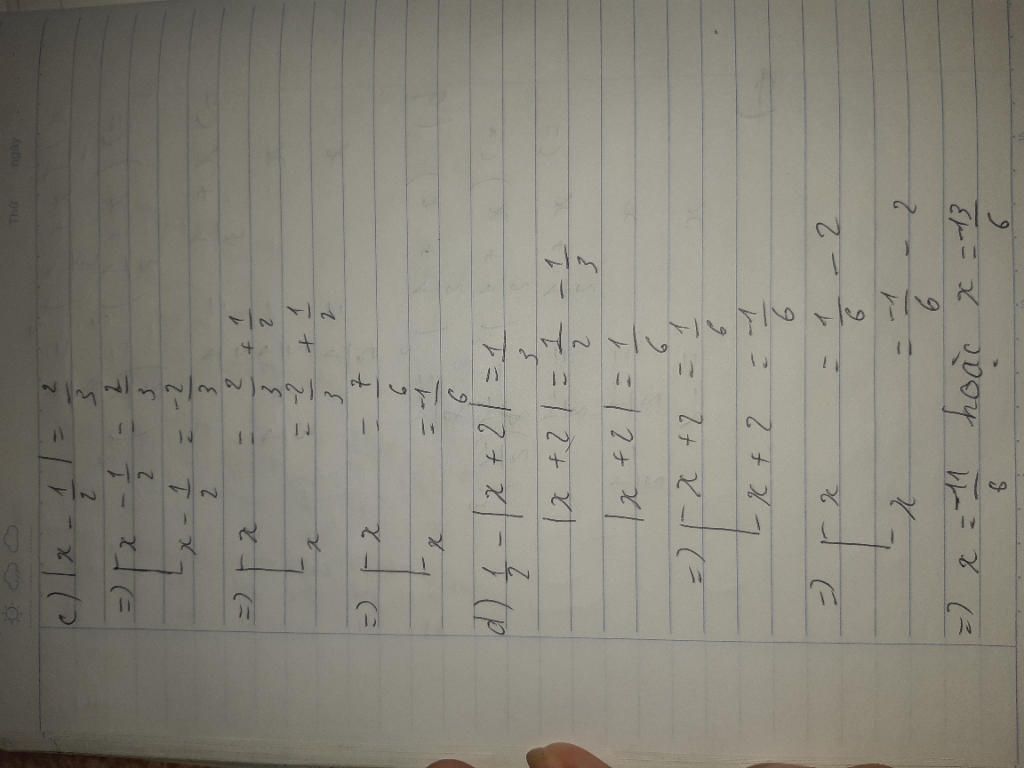 Thứ ngày
c) |x - 1/2| = 2/3
=) [ x - 1/2 = 2/3
[ x - 1/2 = -2/3
=) [ x = 2/3 + 1/2
[ x = -2/3 + 1/2
=) [ x = 7/6
[ x = -1/6
d) 1/2 - |x + 2| = 1/3
|x + 2| = 1/2 - 1/3
|x + 2| = 1/6
=) [ x + 2 = 1/6
[ x + 2 = -1/6
=) [ x = 1/6 - 2
[ x = -1/6 - 2
=) x = -11/6 hoặc x = -13/6